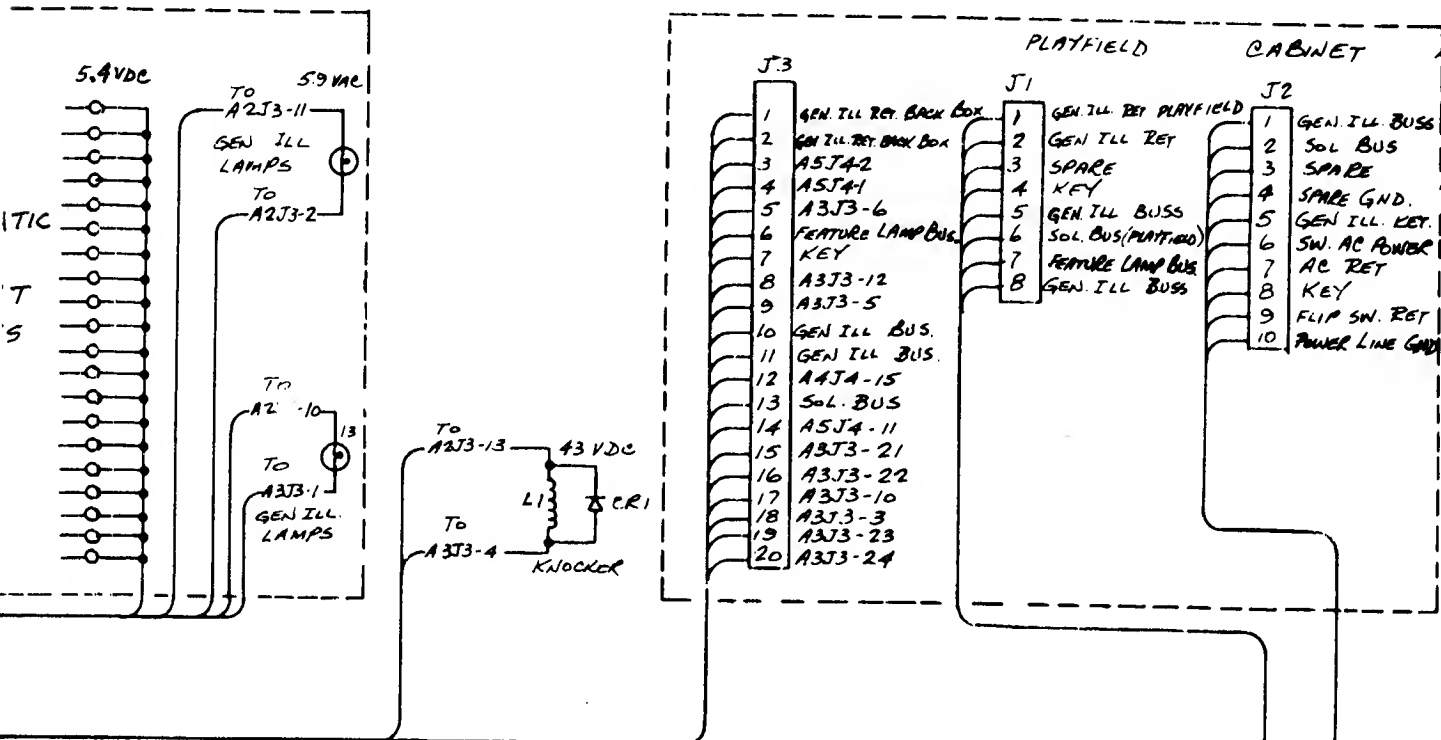 5.4VDC
5.9 VAC
TO
A2J3-11
GEN ILL
LAMPS
TO
A2J3-2
ITIC
T
S
TO
A2 -10
13
TO
A3J3-1
GEN ILL.
LAMPS
TO
A2J3-13
43 VDC
L1
CR1
TO
A3J3-4
KNOCKER
J3
1 GEN. ILL RET. BACK BOX
2 GEN ILL. RET. BACK BOX
3 A5J4-2
4 A5J4-1
5 A3J3-6
6 FEATURE LAMP BUS.
7 KEY
8 A3J3-12
9 A3J3-5
10 GEN ILL BUS.
11 GEN ILL BUS.
12 A4J4-15
13 SOL. BUS
14 A5J4-11
15 A3J3-21
16 A3J3-22
17 A3J3-10
18 A3J3-3
19 A3J3-23
20 A3J3-24
PLAYFIELD
J1
1 GEN. ILL. RET PLAYFIELD
2 GEN ILL RET
3 SPARE
4 KEY
5 GEN. ILL BUSS
6 SOL. BUS (PLAYFIELD)
7 FEATURE LAMP BUS.
8 GEN. ILL BUSS
CABINET
J2
1 GEN. ILL. BUSS
2 SOL BUS
3 SPARE
4 SPARE GND.
5 GEN ILL. RET.
6 SW. AC POWER
7 AC RET
8 KEY
9 FLIP SW. RET
10 POWER LINE GND